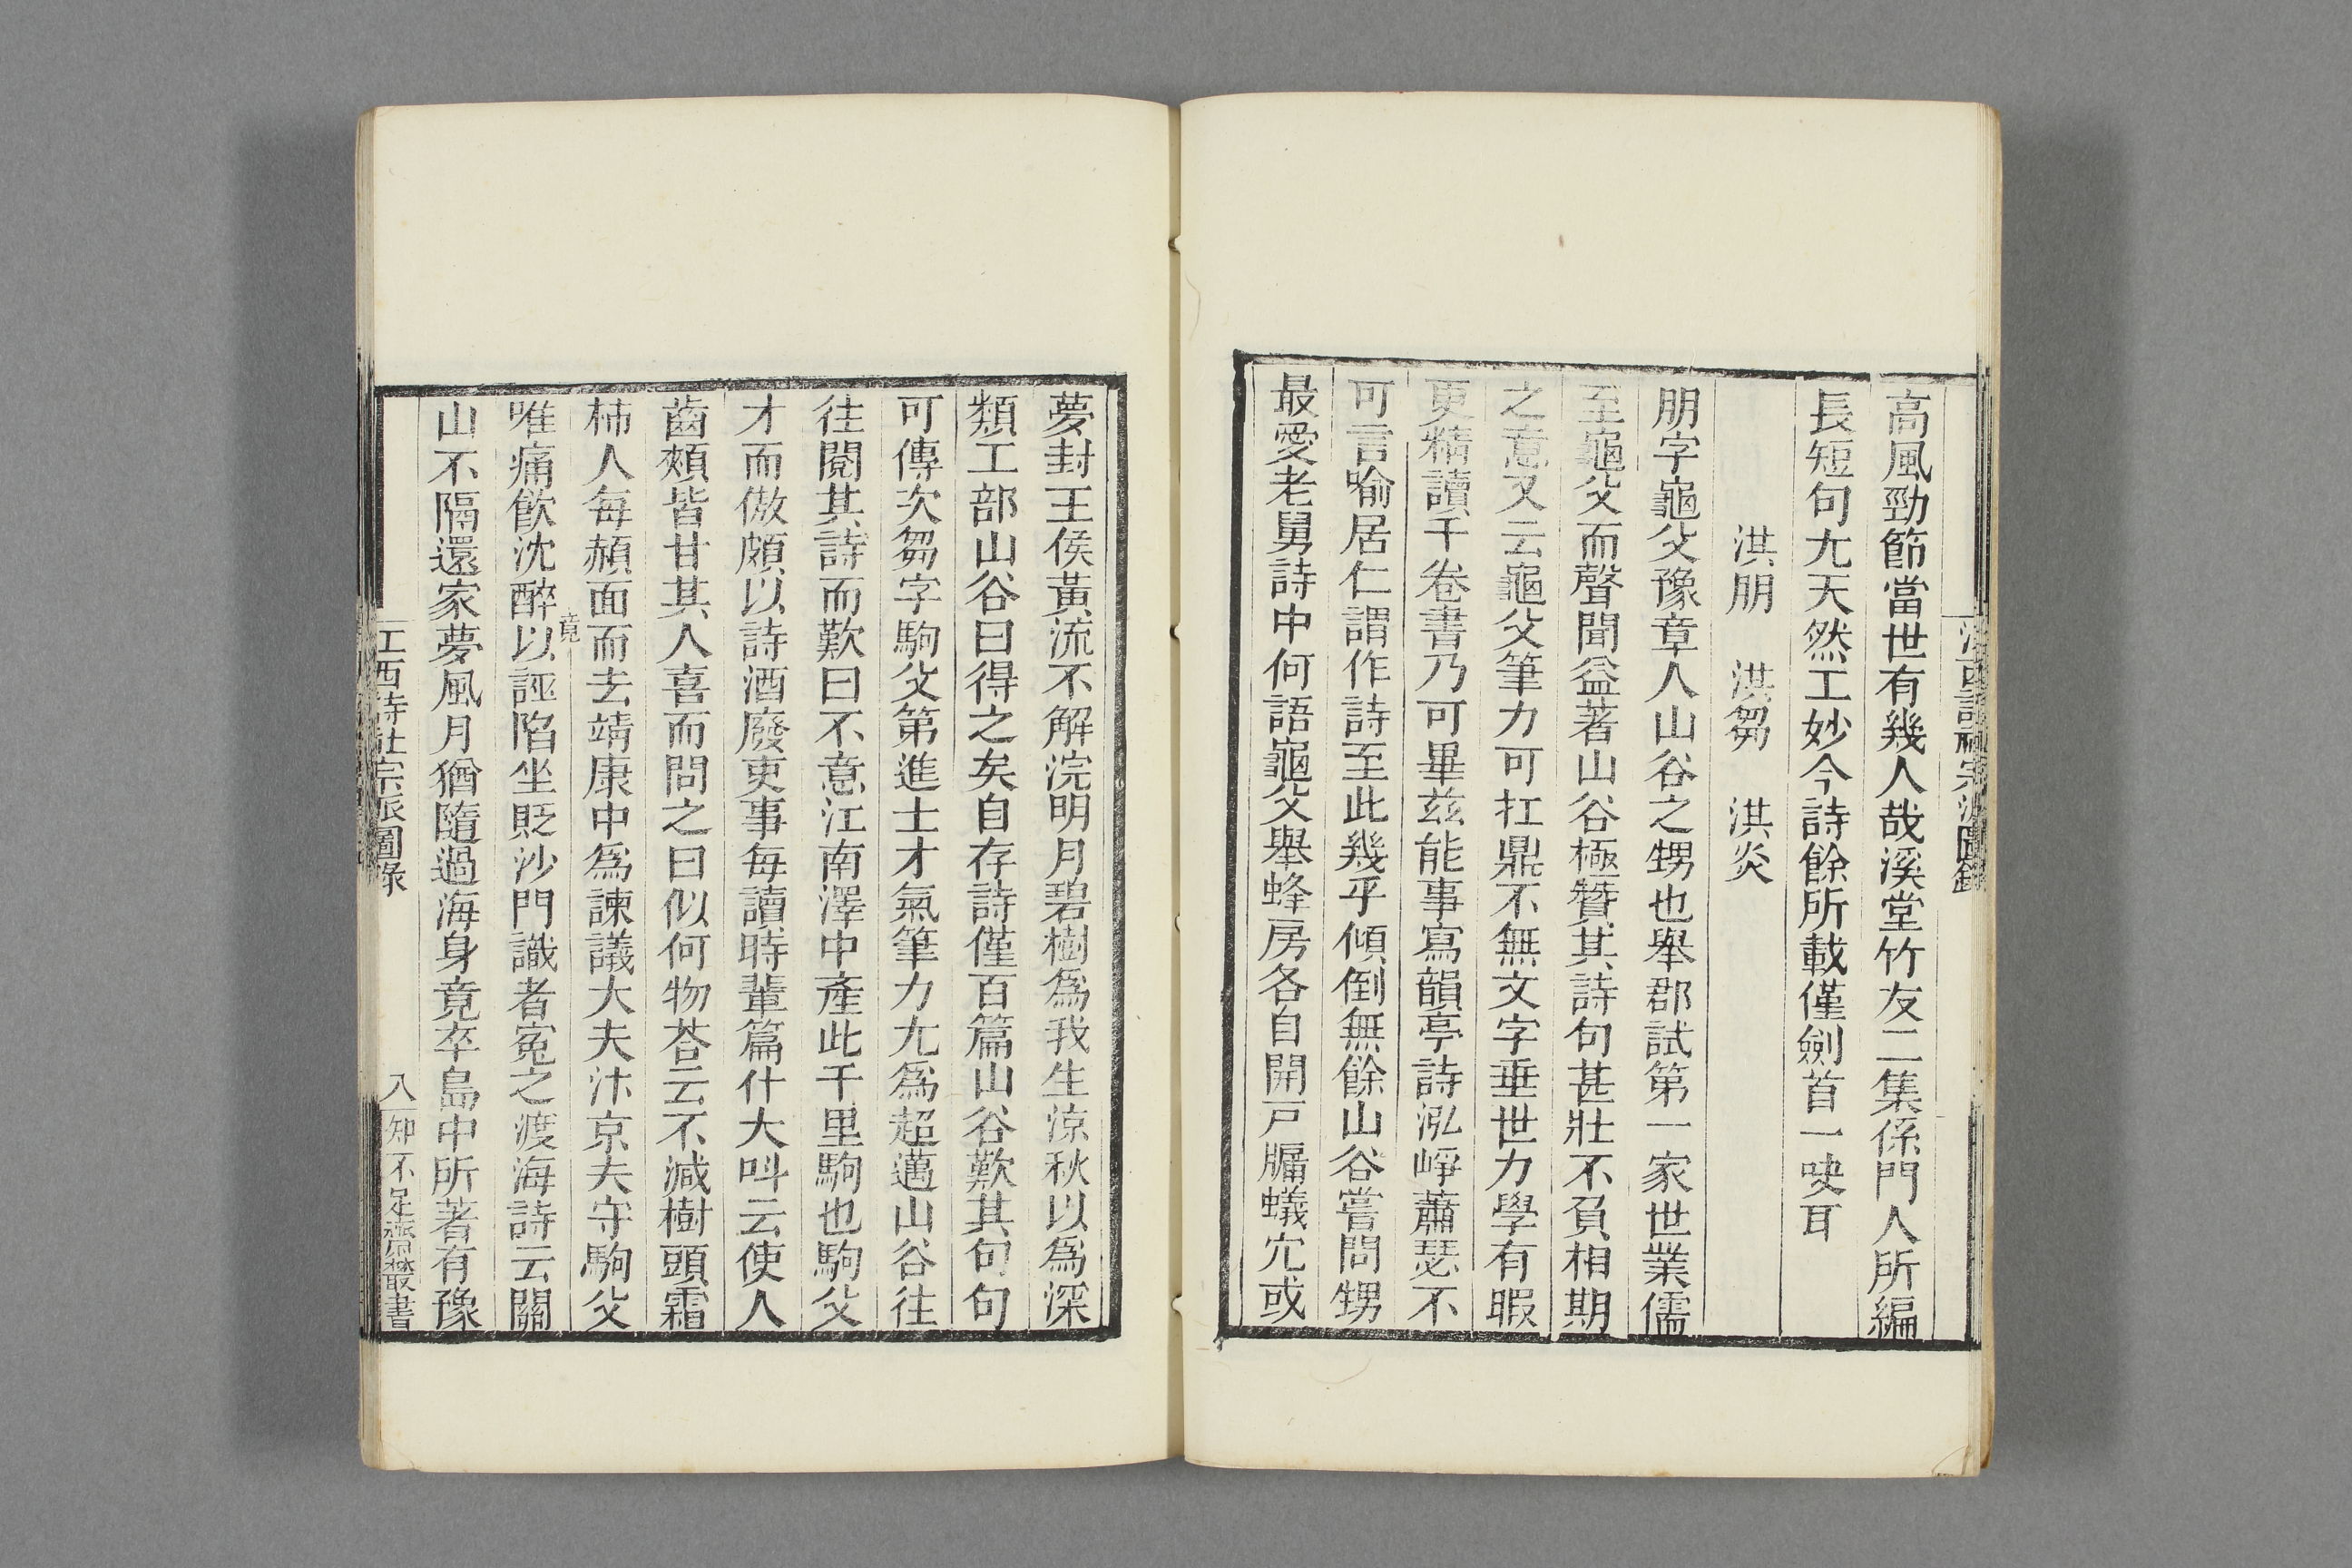 高風勁節當世有幾人哉溪堂竹友二集係門人所編
長短句尢天然工妙今詩餘所載僅劍首一吷耳
洪朋　洪芻　洪炎
朋字龜父豫章人山谷之甥也舉郡試第一家世業儒
至龜父而聲聞益著山谷極贊其詩句甚壯不負相期
之意又云龜父筆力可扛鼎不無文字垂世力學有暇
更精讀千卷書乃可畢茲能事寫韻亭詩泓崢蕭瑟不
可言喻居仁謂作詩至此幾乎傾倒無餘山谷嘗問甥
最愛老舅詩中何語龜父舉蜂房各自開戸牖蟻穴或
夢封王侯黃流不解涴明月碧樹爲我生涼秋以爲深
類工部山谷曰得之矣自存詩僅百篇山谷歎其句句
可傳次芻字駒父第進士才氣筆力尢爲超邁山谷往
往閱其詩而歎曰不意江南澤中產此千里駒也駒父
才而傲頗以詩酒廢吏事每讀時輩篇什大呌云使人
齒頰皆甘其人喜而問之曰似何物荅云不減樹頭霜
柿人每頳面而去靖康中爲諫議大夫汴京夫守駒父
竟
唯痛飲沈醉以誣陷坐貶沙門識者寃之渡海詩云關
山不隔還家夢風月猶隨過海身竟卒島中所著有豫
江西詩社宗派圖錄
八
知不足齋叢書